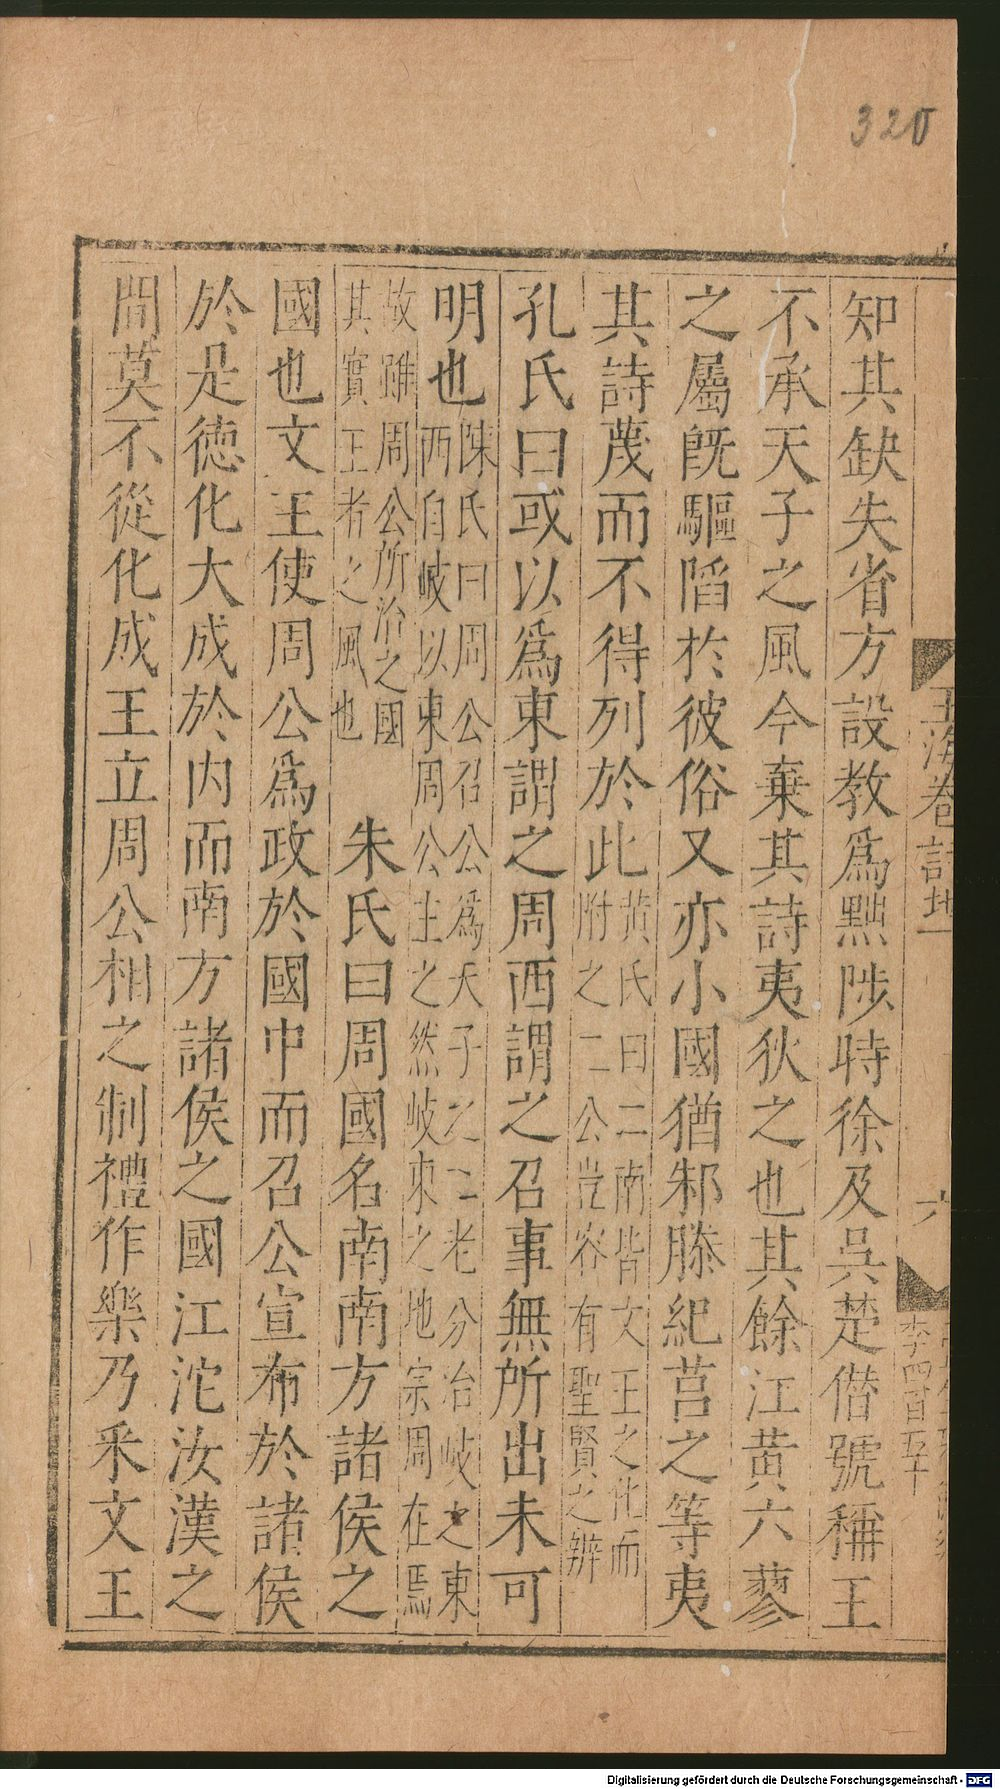 320
玉海卷詩地一
六
李四百五十
知其缺失省方設教爲黜陟時徐及吳楚僣號稱王
不承天子之風今棄其詩夷狄之也其餘江黃六蓼
之屬旣驅陷於彼俗又亦小國猶邾滕紀莒之等夷
其詩蔑而不得列於此黃氏曰二南皆文王之化而
附之二公豈容有聖賢之辨
孔氏曰或以爲東謂之周西謂之召事無所出未可
明也陳氏曰周公召公爲天子之二老分治岐之東
西自岐以東周公主之然岐東之地宗周在焉
故雖周公所治之國
其實王者之風也
朱氏曰周國名南南方諸侯之
國也文王使周公爲政於國中而召公宣布於諸侯
於是徳化大成於内而南方諸侯之國江沱汝漢之
間莫不從化成王立周公相之制禮作樂乃釆文王
Digitalisierung gefördert durch die Deutsche Forschungsgemeinschaft - DFG